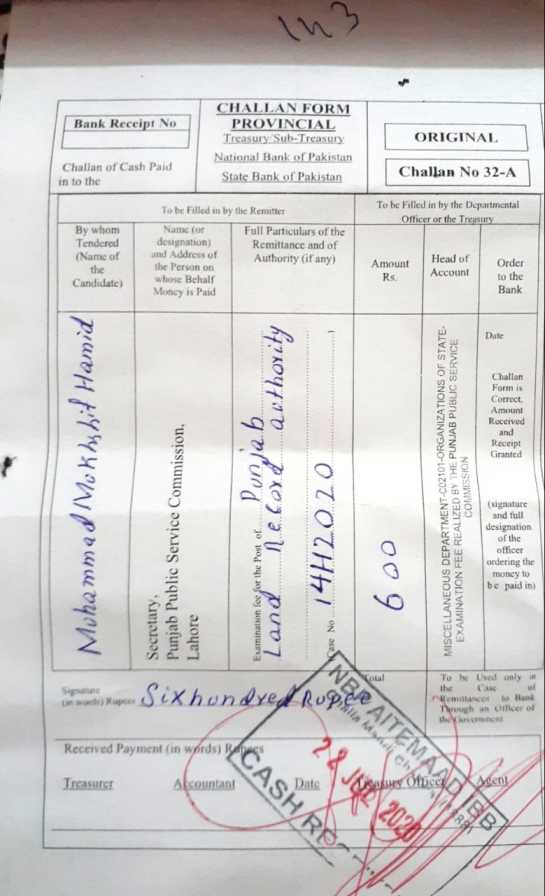 1n3
Bank Receipt No
Challan of Cash Paid
in to the
CHALLAN FORM
PROVINCIAL
Treasury/Sub-Treasury
National Bank of Pakistan
State Bank of Pakistan
ORIGINAL
Challan No 32-A
To be Filled in by the Remitter
To be Filled in by the Departmental
Officer or the Treasury
By whom
Tendered
(Name of
the
Candidate)
Name (or
designation)
and Address of
the Person on
whose Behalf
Money is Paid
Full Particulars of the
Remittance and of
Authority (if any)
Amount
Rs.
Head of
Account
Order
to the
Bank
Mohammad Mokhshif Hamid
Secretary,
Punjab Public Service Commission,
Lahore
Examination fee for the Post of Punjab
Land Record authority
(Case No 14H2020)
600
MISCELLANEOUS DEPARTMENT-C02101-ORGANIZATIONS OF STATE-
EXAMINATION FEE REALIZED BY THE PUNJAB PUBLIC SERVICE
COMMISSION
Date
Challan
Form is
Correct,
Amount
Received
and
Receipt
Granted
(signature
and full
designation
of the
officer
ordering the
money to
be paid in)
Signature
(in words) Rupees Sixhundred Rupee
Total
To be Used only in
the Case of
Remittances to Bank
Through an Officer of
the Government
Received Payment (in words) Rupees
Treasurer Accountant Date Treasury Officer Agent
NBP AITEMAAD IBB
22 2020
CASH RE